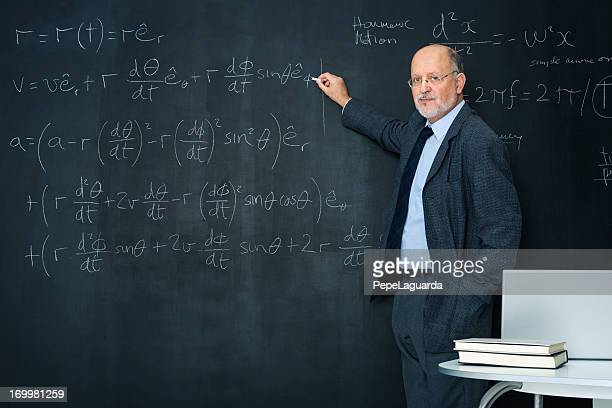 r = r(t) = rê_r
v = vê_r + r dθ/dt ê_θ + r dφ/dt sinθ ê_φ
a = (a - r (dθ/dt)² - r (dφ/dt)² sin²θ) ê_r
+ (r d²θ/dt² + 2v dθ/dt - r (dφ/dt)² sinθcosθ) ê_θ
+ (r d²φ/dt² sinθ + 2v dφ/dt sinθ + 2r dθ/dt
Harmonic
Motion
d²x/dt² = -ω²x
simple
= 2πf = 2π/
gettyimages
PepeLaguarda
169981259